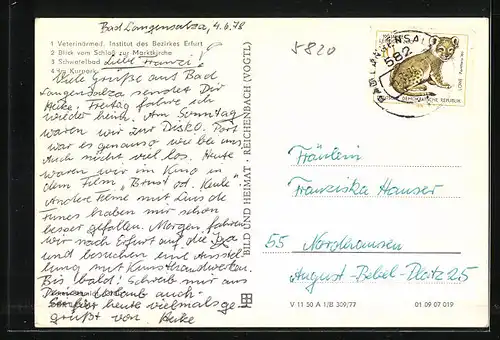 Bad Langensalza, 4.6.78
1 Veterinärmed. Institut des Bezirkes Erfurt
2 Blick vom Schloß zur Marktkirche
3 Schwefelbad
4 Im Kurpark
Liebe Franzi!
Viele Grüße aus Bad
Langensalza sendet Dir
Heike. Freitag fahre ich
wieder heim. Am Sonntag
waren wir zur Disko. Dort
war es genauso wie bei uns
Auch nicht viel los. Heute
waren wir im Kino in
dem Film "Brust od. Keule".
Andere Filme mit Luis de
Funes haben mir schon
besser gefallen. Morgen fahren
wir nach Erfurt auf die Iga
und besuchen eine Ausstel
lung mit Kunsthandwerken.
Bis bald! Schreib mir aus
Deinem Urlaub auch
Sei für heute vielmals ge
grüßt von Heike
BILD UND HEIMAT · REICHENBACH (VOGTL)
5820
582
DEMOKRATISCHE REPUBLIK
LÖWE
Fräulein
Franziska Hauser
55 Nordhausen
August-Bebel-Platz 25
V 11 50 A 1/B 309/77
01 09 07 019